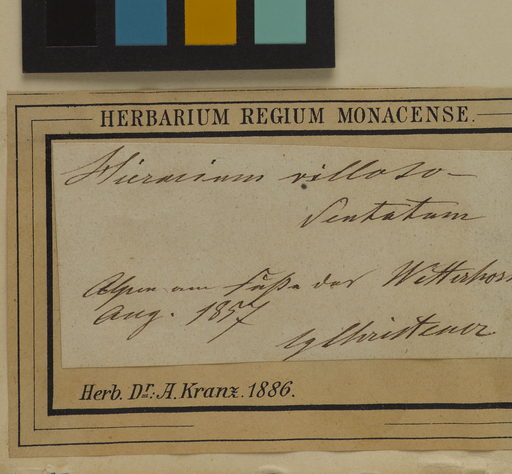 HERBARIUM REGIUM MONACENSE.
Hieracium villoso-
dentatum
Alpen am Fuße des Wetterhorn
Aug. 1857
Christener
Herb. Dr. A. Kranz. 1886.